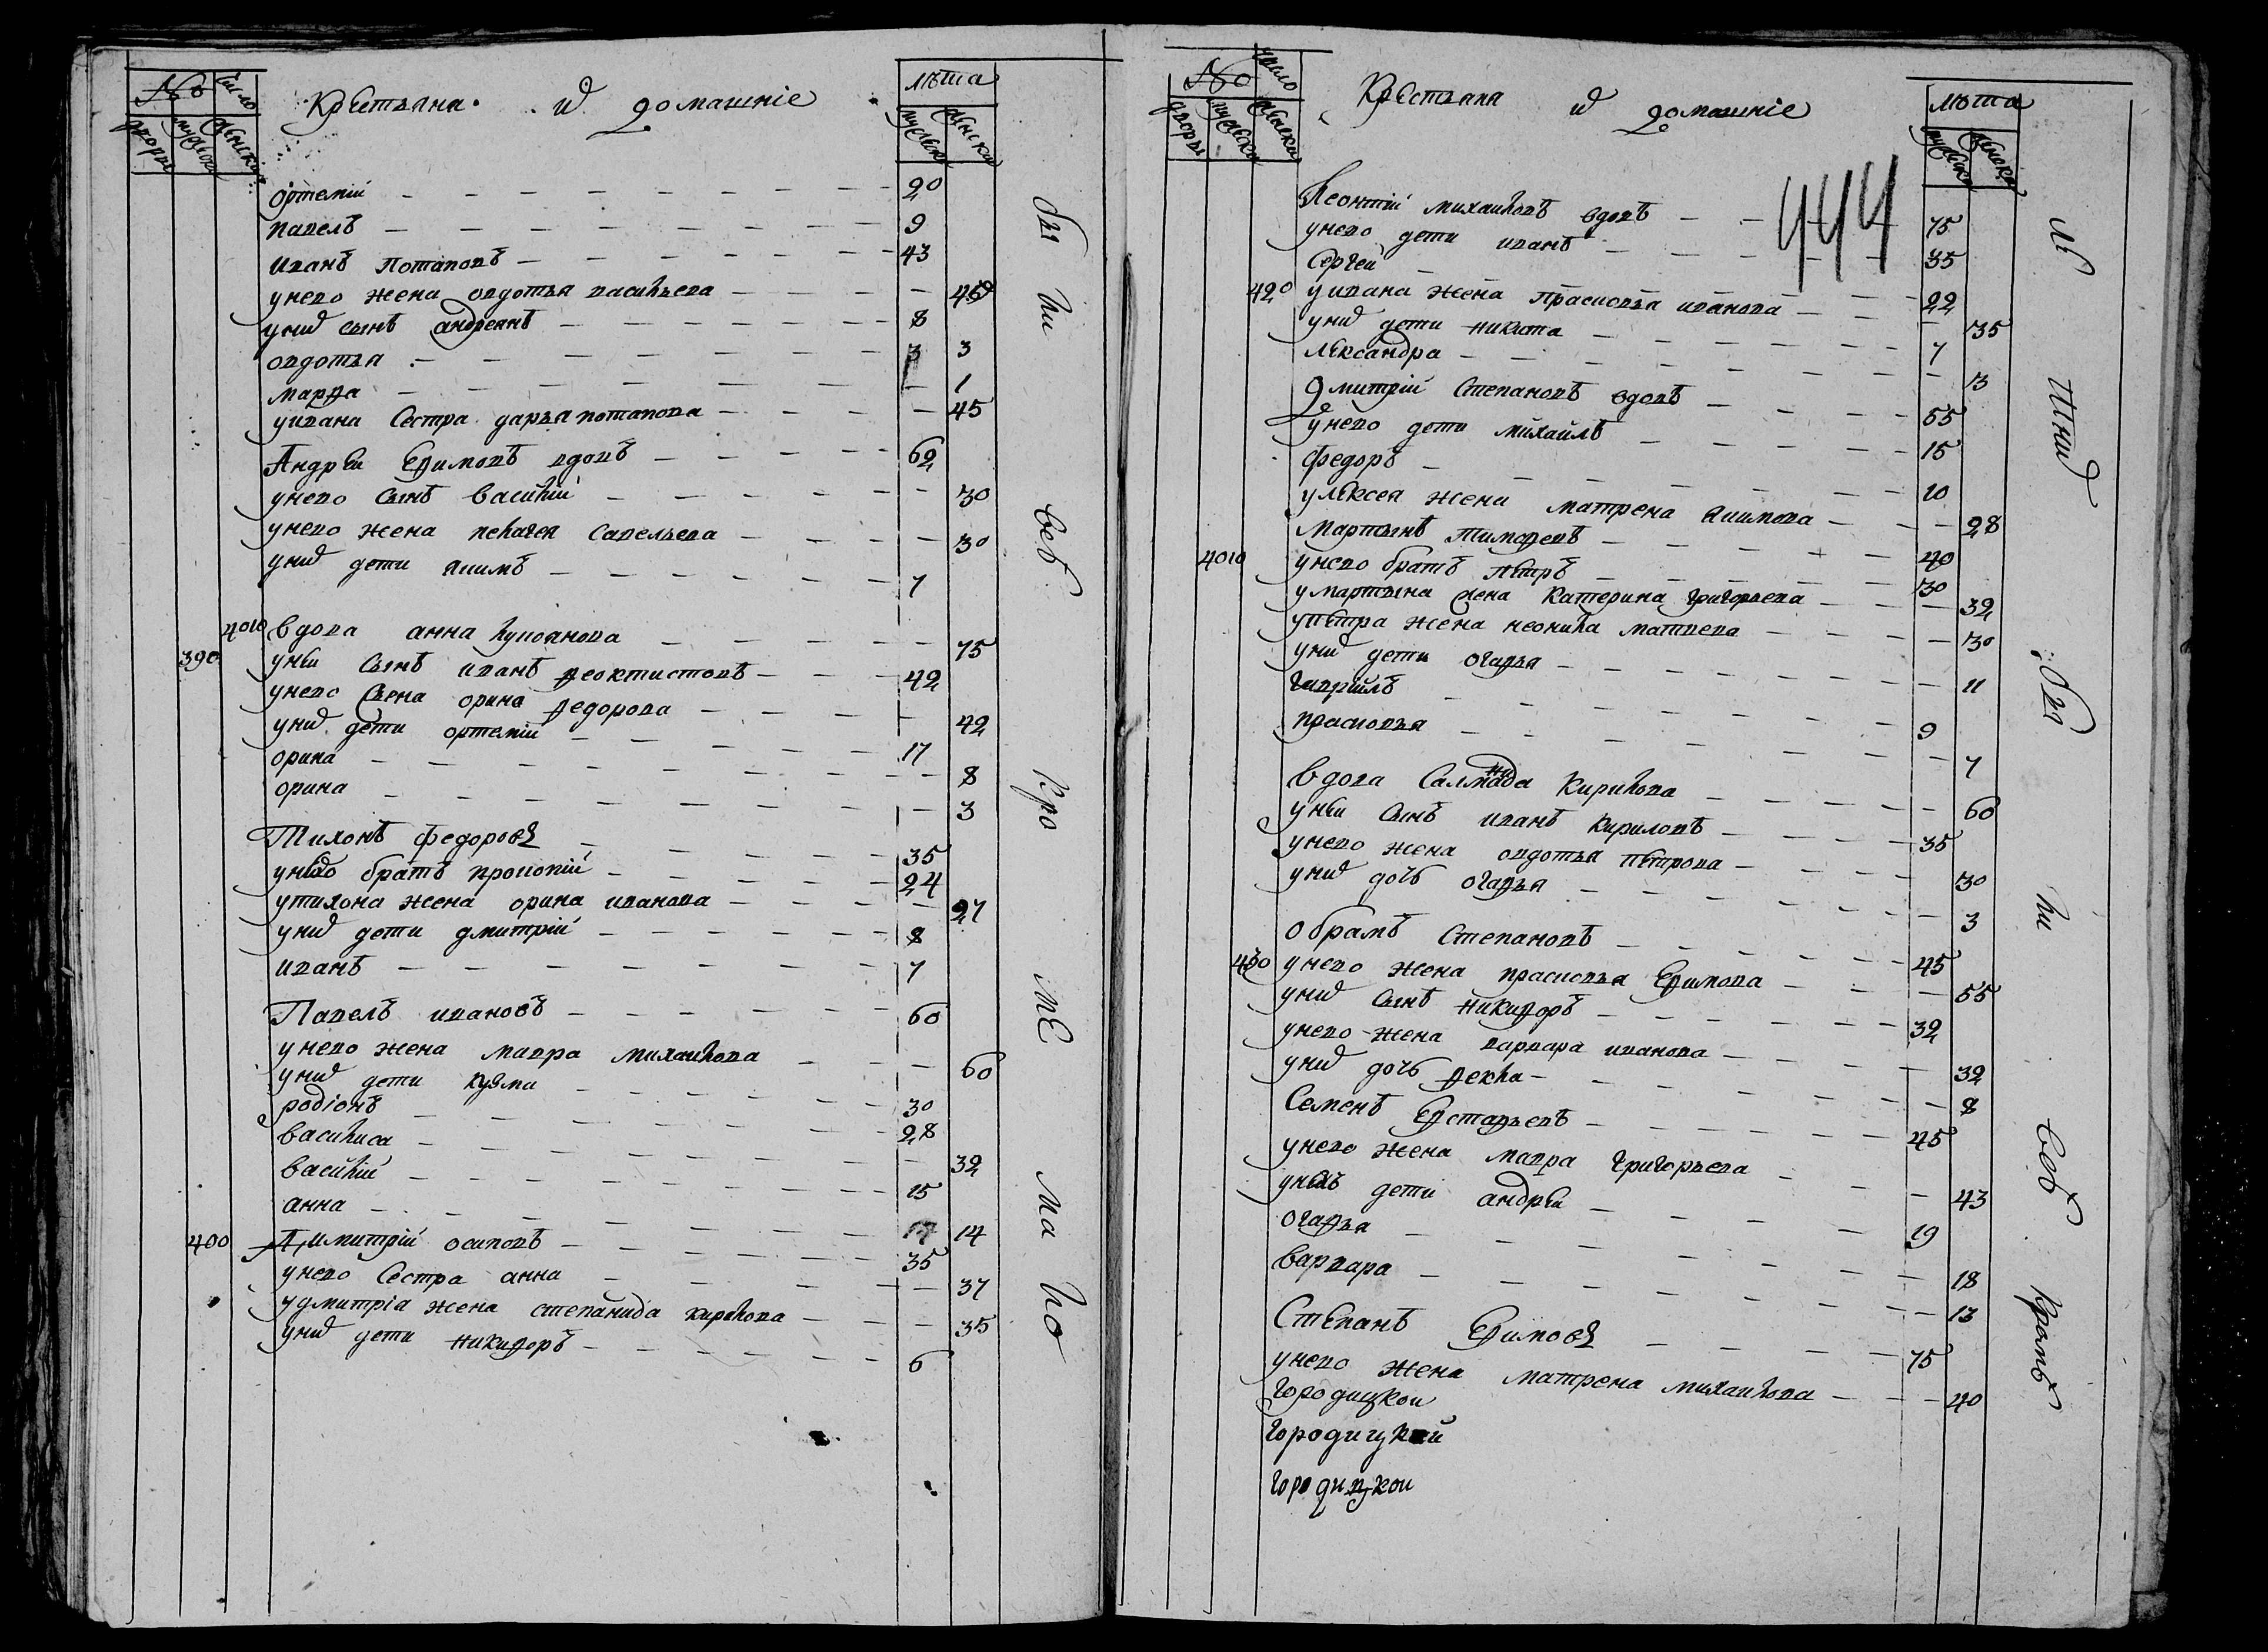 № число Крестьяне и домашние лѣта
дворы мужеска женска мужеска женска
ортемiй 20
павелъ 9
иванъ Потаповъ 43
унево жена овдотья васильева 40
унихъ сынъ андреянъ 8
овдотья 3
марфа 1
уивана сестра дарья потапова 45
Андрѣи Ефимовъ вдовъ 62
унево сынъ василiй 30
унево жена пелагея савельева 30
унихъ дети якимъ 7
4010 вдова анна лукоянова 75
390 унѣи сынъ иванъ феоктистовъ 42
унево жена орина федорова 42
унихъ дети ортемiй 17
орина 8
орина 3
Тихонъ федоровъ 35
унево братъ прокопiй 24
утихона жена орина иванова 27
унихъ дети дмитрiй 8
иванъ 7
Павелъ ивановъ 60
унево жена мавра михаилова 60
унихъ дети кузма 30
родiонъ 28
василиса 32
василiй 15
анна 14
400 Димитрiй осиповъ 35
унево сестра анна 37
удмитрiа жена степанида кирилова 35
унихъ дети никифоръ 6
были всѣ кроме мало
№ число Крестьяна и домашнiе лѣта
дворы мужеска женска мужеска женска
444
Леонтiй михаиловъ вдовъ 75
унево дети иванъ 35
Сергей 22
420 уивана жена прасковья иванова 35
унихъ дети никита 7
лександра 3
Дмитрiй Степановъ вдовъ 55
унево дети михаилъ 15
федоръ 10
улексея жена матрена якимова 28
мартынъ тимофевъ 40
4010 унево братъ петръ 30
умартына жена катерина григорьева 32
упетра жена неонила матвева 30
унихъ дети огафья 11
гаврiилъ 9
прасковья 7
вдова Саломанида кирилова 60
унѣи сынъ иванъ кириловъ 35
унево жена овдотья петрова 30
унихъ дочь огафья 3
обрамъ степановъ 45
430 унево жена прасковья Ефимова 55
унихъ сынъ никифоръ 32
унево жена варвара иванова 32
унихъ дочь фекла 8
Семенъ Евстафьевъ 45
унево жена мавра григорьева 43
унихъ дети андрѣи 19
огафья 18
варвара 13
Степанъ Ефимовъ 75
унево жена матрена михаилова 40
городицкои
городицкой
городицкои
лѣтнихъ были всѣ кромѣ